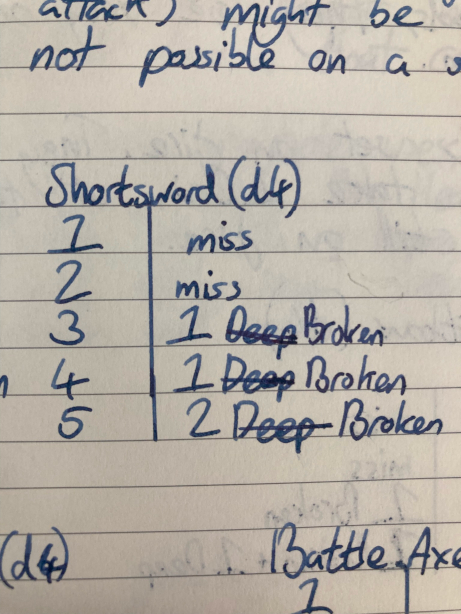 attack) might be
not possible on a s
Shortsword (d4)
1 miss
2 miss
3 1 Deep Broken
4 1 Deep Broken
5 2 Deep Broken
(d4) Battle Axe
1